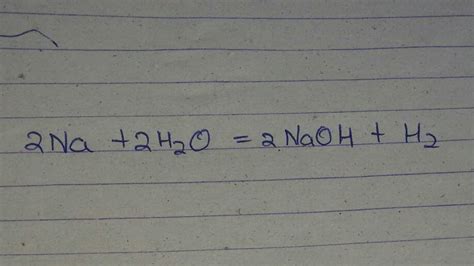 2Na +2H₂O = 2NaOH + H₂